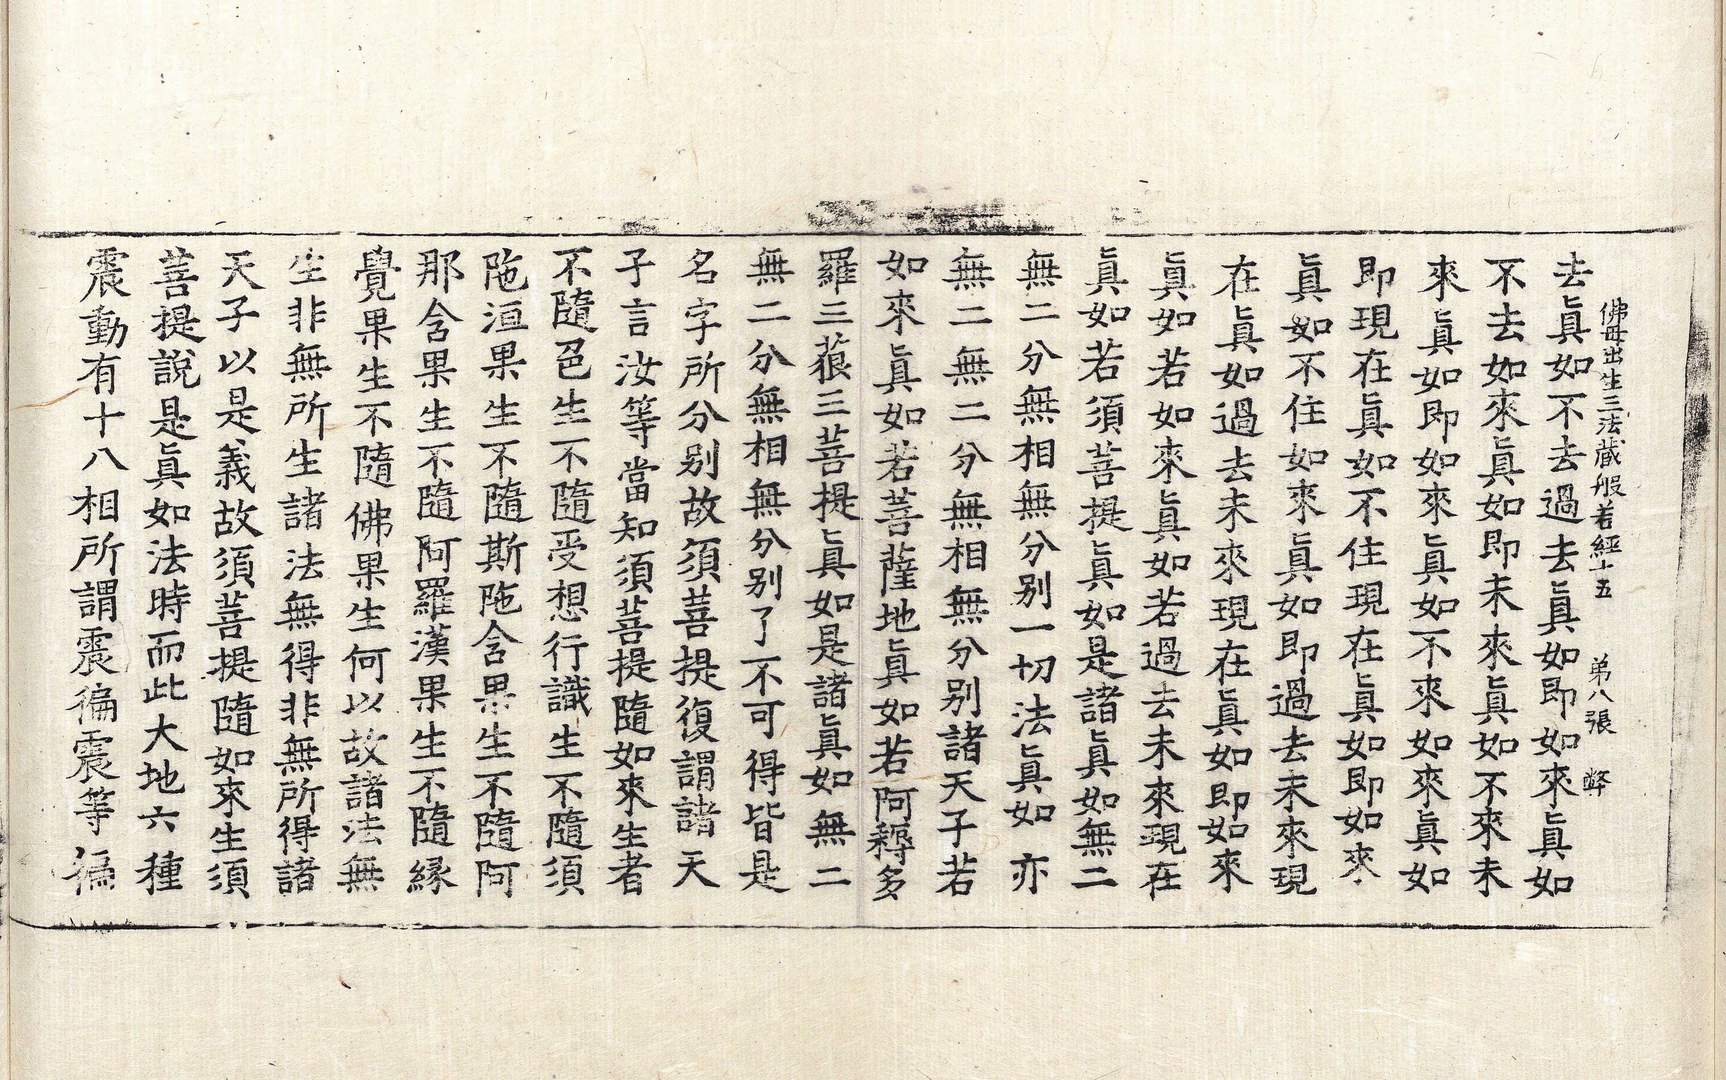 佛母出生三法藏般若經十五 弟八張 弊
去眞如不去過去眞如即如來眞如
不去如來眞如即未來眞如不來未
來眞如即如來眞如不來如來眞如
即現在眞如不住現在眞如即如來
眞如不住如來眞如即過去未來現
在眞如過去未來現在眞如即如來
眞如若如來眞如若過去未來現在
眞如若須菩提眞如是諸眞如無二
無二分無相無分别一切法眞如亦
無二無二分無相無分别諸天子若
如來眞如若菩薩地眞如若阿耨多
羅三藐三菩提眞如是諸眞如無二
無二分無相無分别了不可得皆是
名字所分别故須菩提復謂諸天
子言汝等當知須菩提隨如來生者
不隨色生不隨受想行識生不隨須
陁洹果生不隨斯陁含果生不隨阿
那含果生不隨阿羅漢果生不隨縁
覺果生不隨佛果生何以故諸法無
生非無所生諸法無得非無所得諸
天子以是義故須菩提隨如來生須
菩提說是眞如法時而此大地六種
震動有十八相所謂震徧震等徧